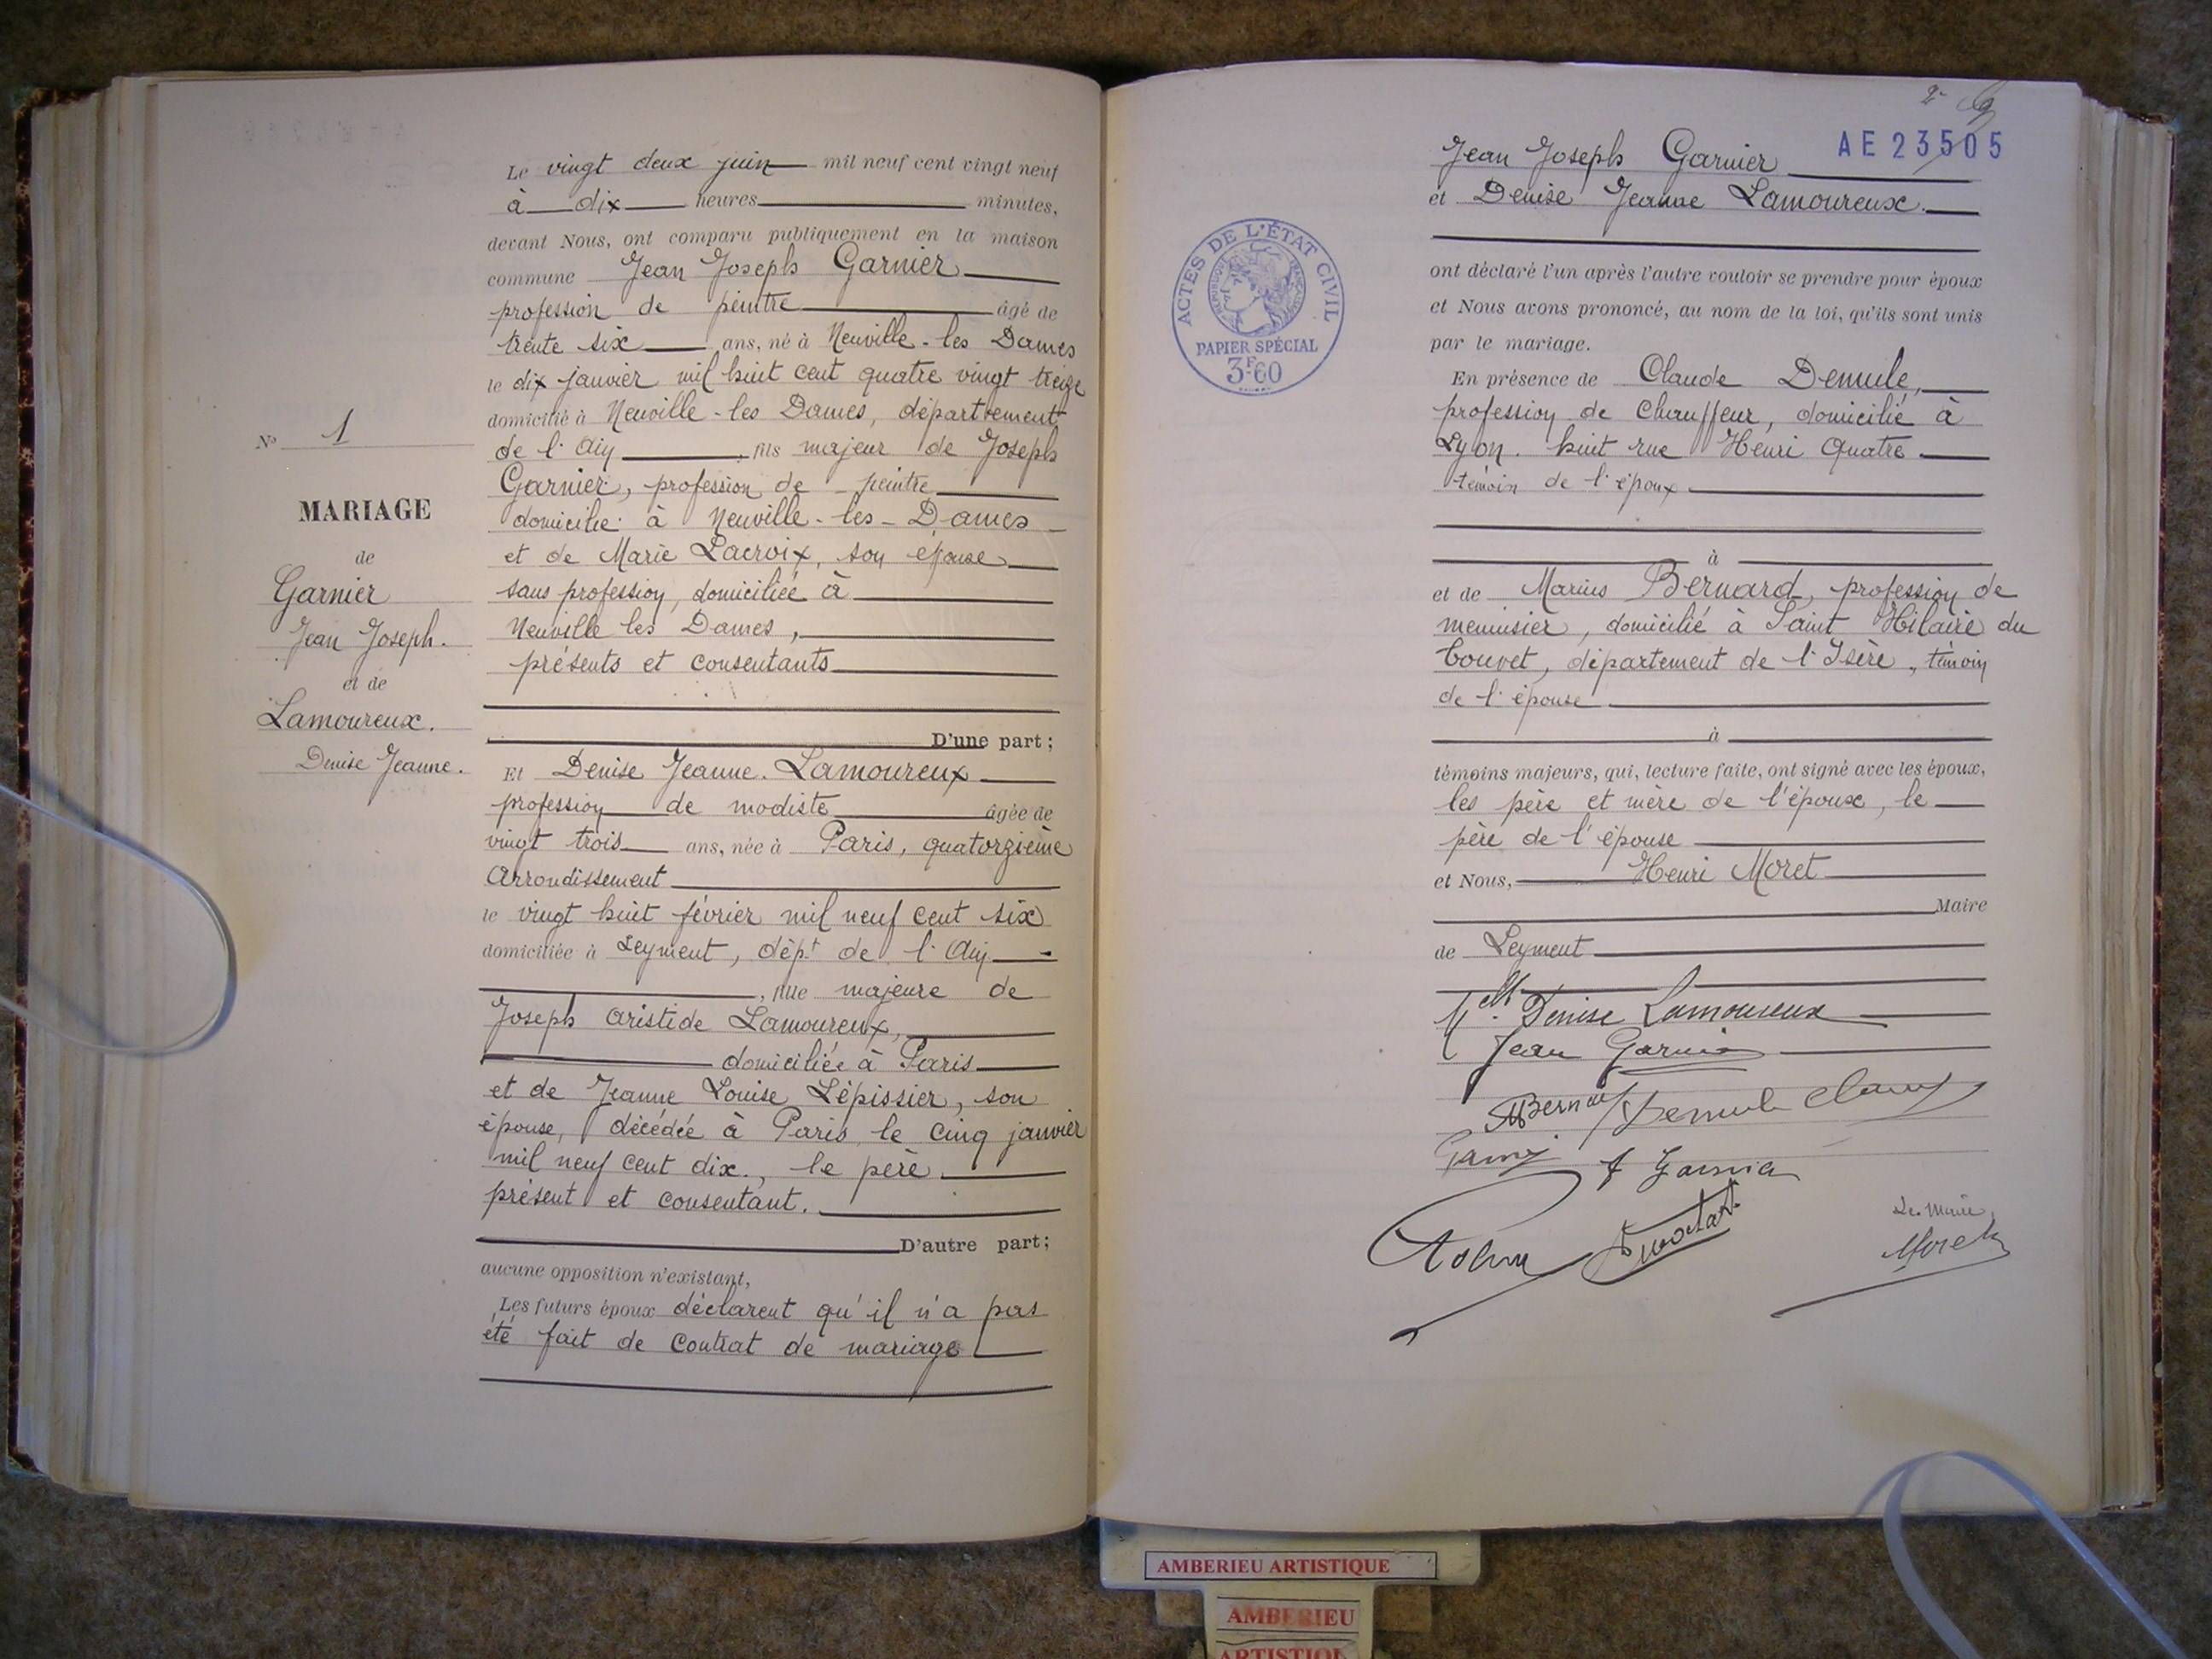 Le vingt deux juin mil neuf cent vingt neuf
à dix heures minutes,
devant Nous, ont comparu publiquement en la maison
commune Jean Joseph Garnier
profession de peintre âgé de
trente six ans, né à Neuville-les Dames
le dix janvier mil huit cent quatre vingt treize
domicilié à Neuville-les Dames, département
de l'Ain, fils majeur de Joseph
Garnier, profession de peintre
domicilié à Neuville-les-Dames
et de Marie Lacroix, son épouse
sans profession, domiciliée à
Neuville les Dames,
présents et consentants
D'une part;
Et Denise Jeanne. Lamoureux
profession de modiste âgée de
vingt trois ans, née à Paris, quatorzième
Arrondissement
le vingt huit février mil neuf cent six
domiciliée à Leyment, dépt de l'Ain
, fille majeure de
Joseph Aristide Lamoureux,
domiciliée à Paris
et de Jeanne Louise Lépissier, son
épouse, décédée à Paris le cinq janvier
mil neuf cent dix., le père
présent et consentant.
D'autre part;
aucune opposition n'existant,
Les futurs époux déclarent qu'il n'a pas
été fait de contrat de mariage
No 1
MARIAGE
de
Garnier
Jean Joseph.
et de
Lamoureux.
Denise Jeanne.
2
AE 23505
Jean Joseph Garnier
et Denise Jeanne Lamoureux.
ont déclaré l'un après l'autre vouloir se prendre pour époux
et Nous avons prononcé, au nom de la loi, qu'ils sont unis
par le mariage.
En présence de Claude Demule,
profession de Chauffeur, domicilié à
Lyon. huit rue Henri Quatre
témoin de l'époux
à
et de Marius Bernard, profession de
menuisier, domicilié à Saint Hilaire du
Touvet, département de l'Isère, témoin
de l'épouse
à
témoins majeurs, qui, lecture faite, ont signé avec les époux,
les père et mère de l'époux, le
père de l'épouse
et Nous, Henri Moret
Maire
de Leyment
Denise Lamoureux
Jean Garnier
Bernard Demule Claude
J Garnier
Le Maire,
Moret
ACTES DE L'ÉTAT CIVIL
RÉPUBLIQUE FRANÇAISE
PAPIER SPÉCIAL
3F60
AMBERIEU ARTISTIQUE
AMBERIEU